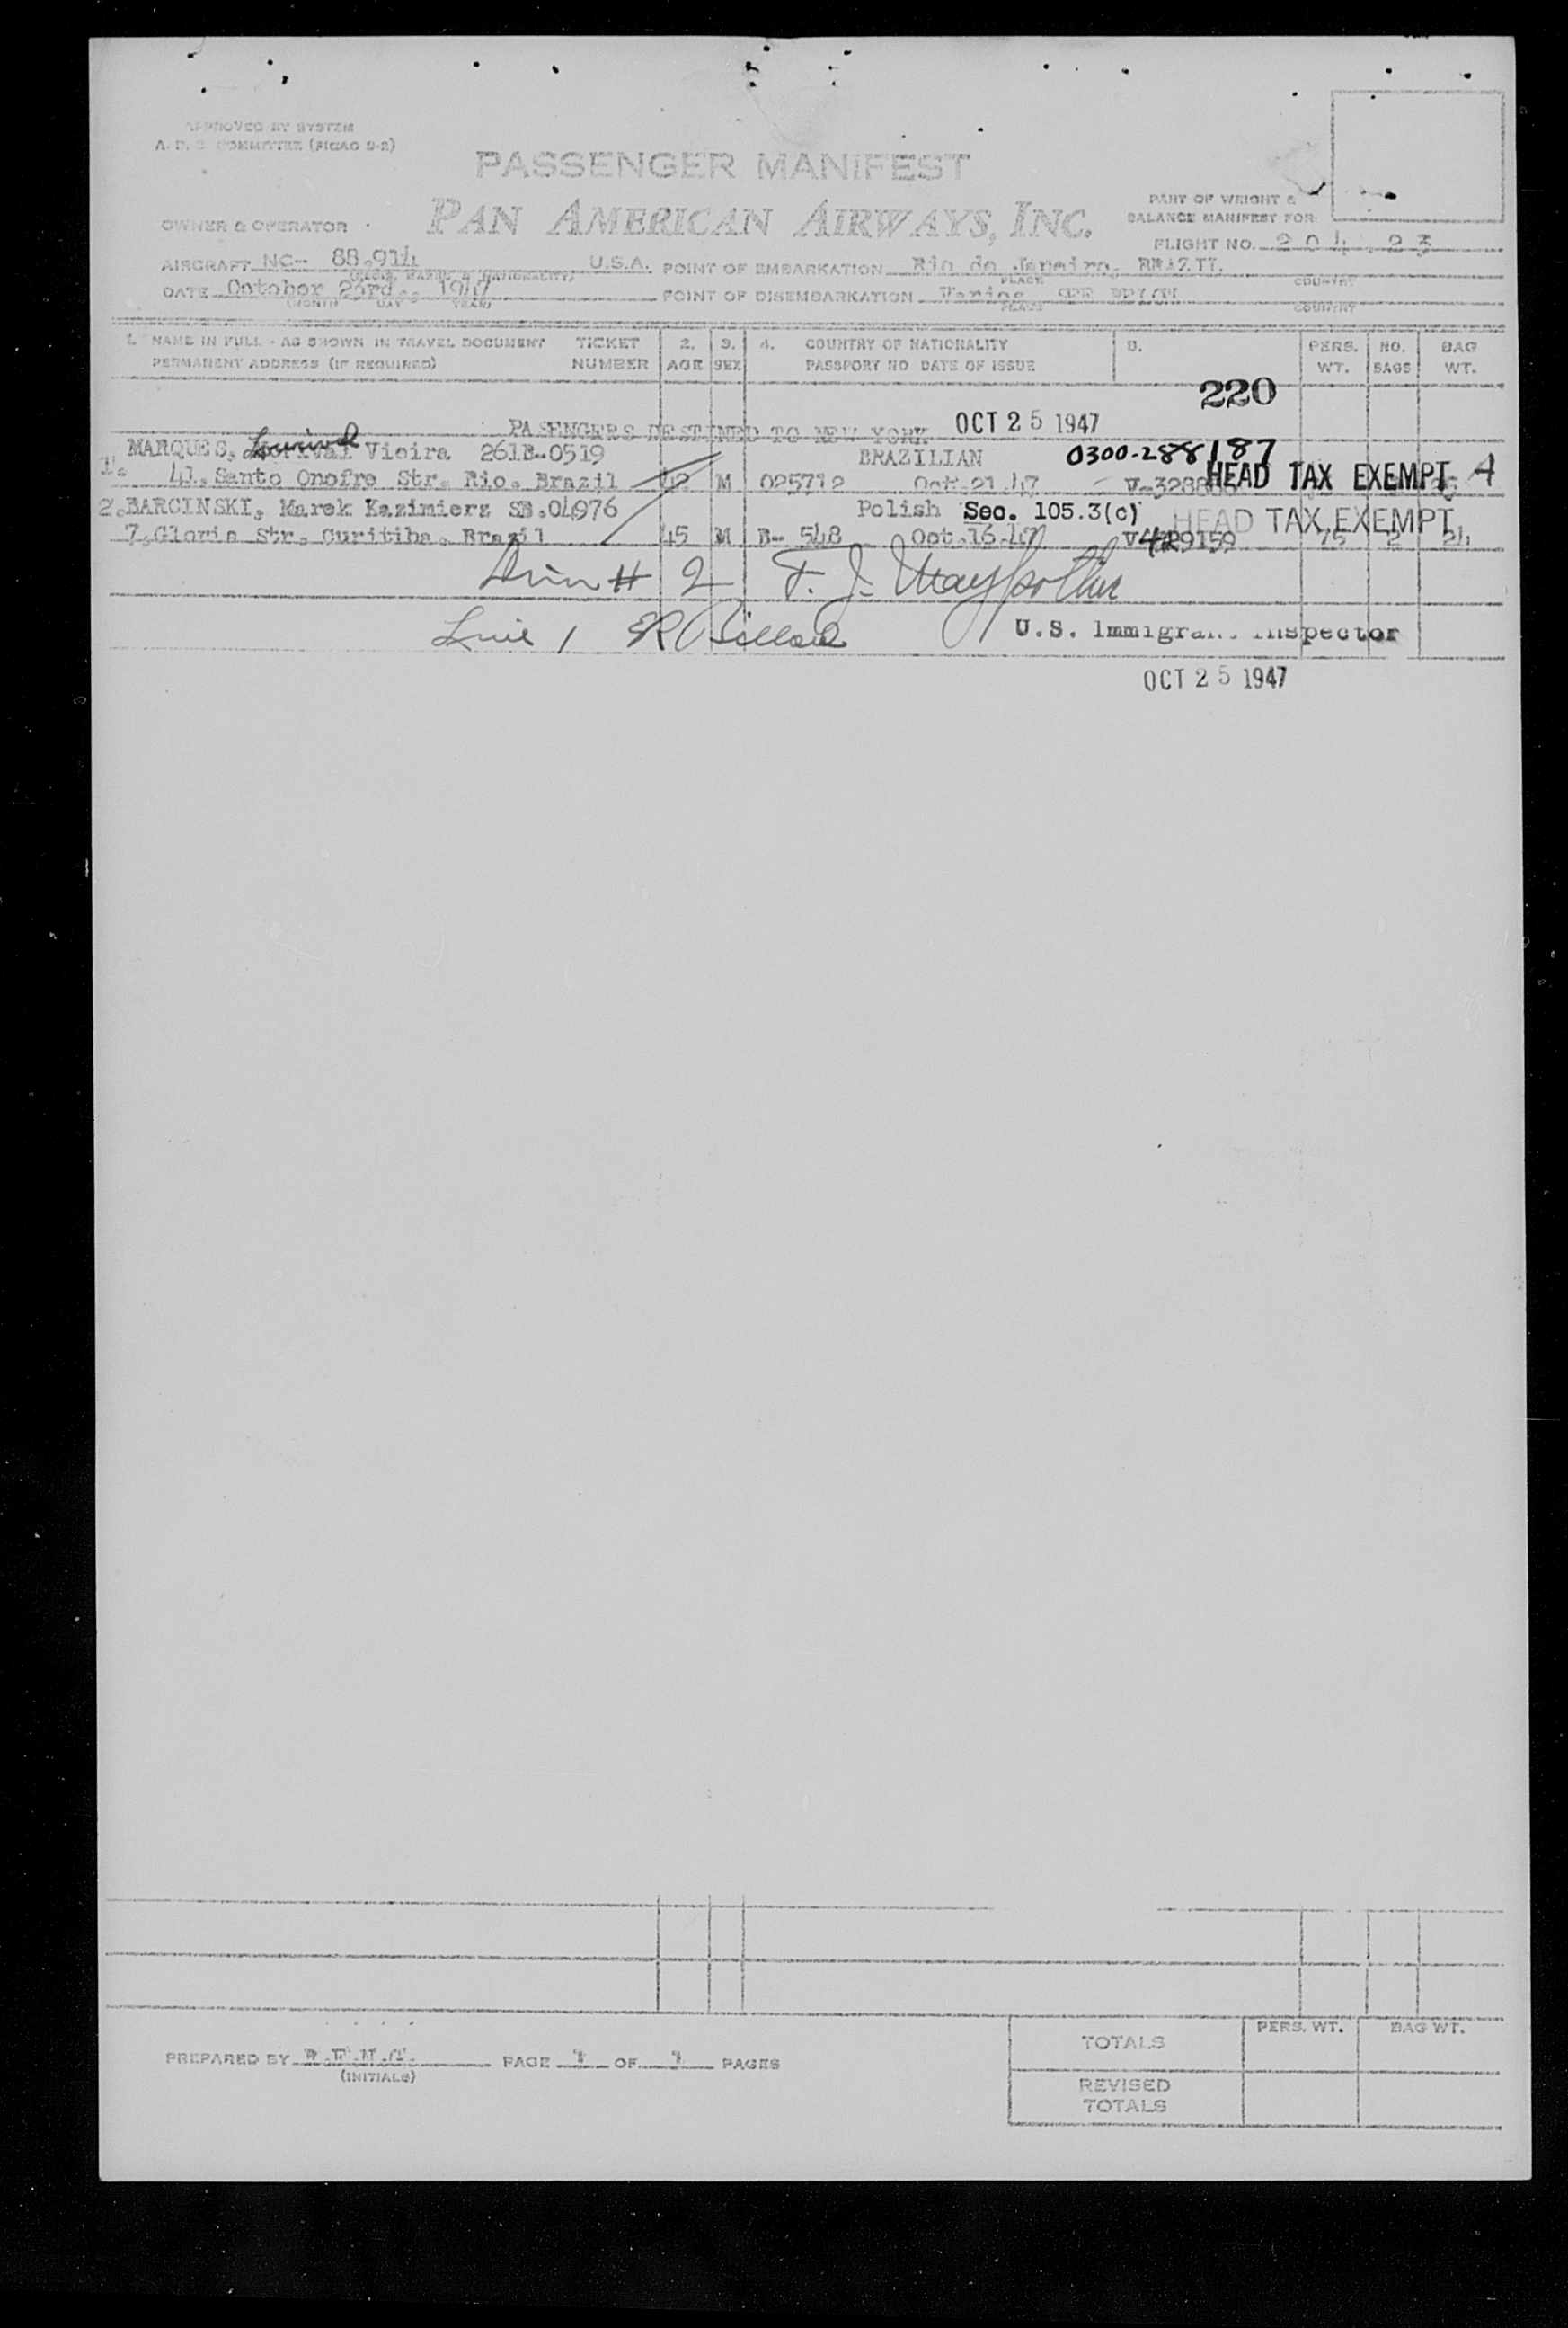 APPROVED BY SYSTEM
A. D. S COMMITTEE (PICAO 9-2)
PASSENGER MANIFEST
OWNER & OPERATOR
PAN AMERICAN AIRWAYS, INC.
PART OF WEIGHT &
BALANCE MANIFEST FOR:
FLIGHT NO. 204 . 23
AIRCRAFT NC-- 88.914 U.S.A.
POINT OF EMBARKATION Rio de Janeiro, BRAZIL
PLACE COUNTRY
DATE October 23rd.. 1947
(MONTH DAY YEAR)
POINT OF DISEMBARKATION Varios
PLACE COUNTRY
1. NAME IN FULL - AS SHOWN IN TRAVEL DOCUMENT TICKET 2. 3. 4. COUNTRY OF NATIONALITY 5. PERS. NO. BAG
PERMANENT ADDRESS (IF REQUIRED) NUMBER AGE SEX PASSPORT NO DATE OF ISSUE WT. BAGS WT.
220
PASENGERS DESTINED TO NEW YORK OCT 25 1947
MARQUES, Lourival Vieira 261B-0519 BRAZILIAN 0300-288187
1. 41.Santo Onofre Str. Rio. Brazil 42 M 025712 Oct.21.47 HEAD TAX EXEMPT A
2.BARCINSKI, Marek Kazimierz SB.04976 Polish Sec. 105.3(c) HEAD TAX EXEMPT
7.Gloria Str. Curitiba. Brazil 45 M B-- 548 Oct.16.47 75 2 24
# 2 F. J.
Line 1
U.S. Immigrant Inspector
OCT 25 1947
PREPARED BY
(INITIALS)
PAGE 1 OF 1 PAGES
TOTALS PERS. WT. BAG WT.
REVISED
TOTALS